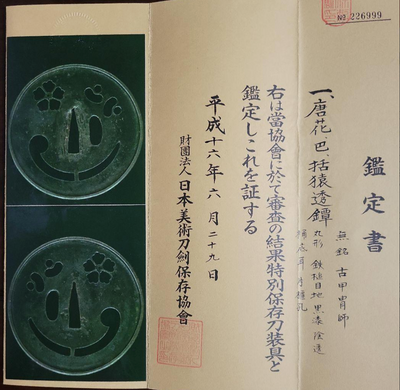 № 226999
鑑定書
一、唐花、巴、括猿透鐔
無銘 古甲冑師
丸形 鉄槌目地 黒漆 陰透
耳 片櫃孔
右は當協會に於て審査の結果特別保存刀装具と
鑑定しこれを証する
平成十六年六月二十九日
財團法人 日本美術刀劍保存協會